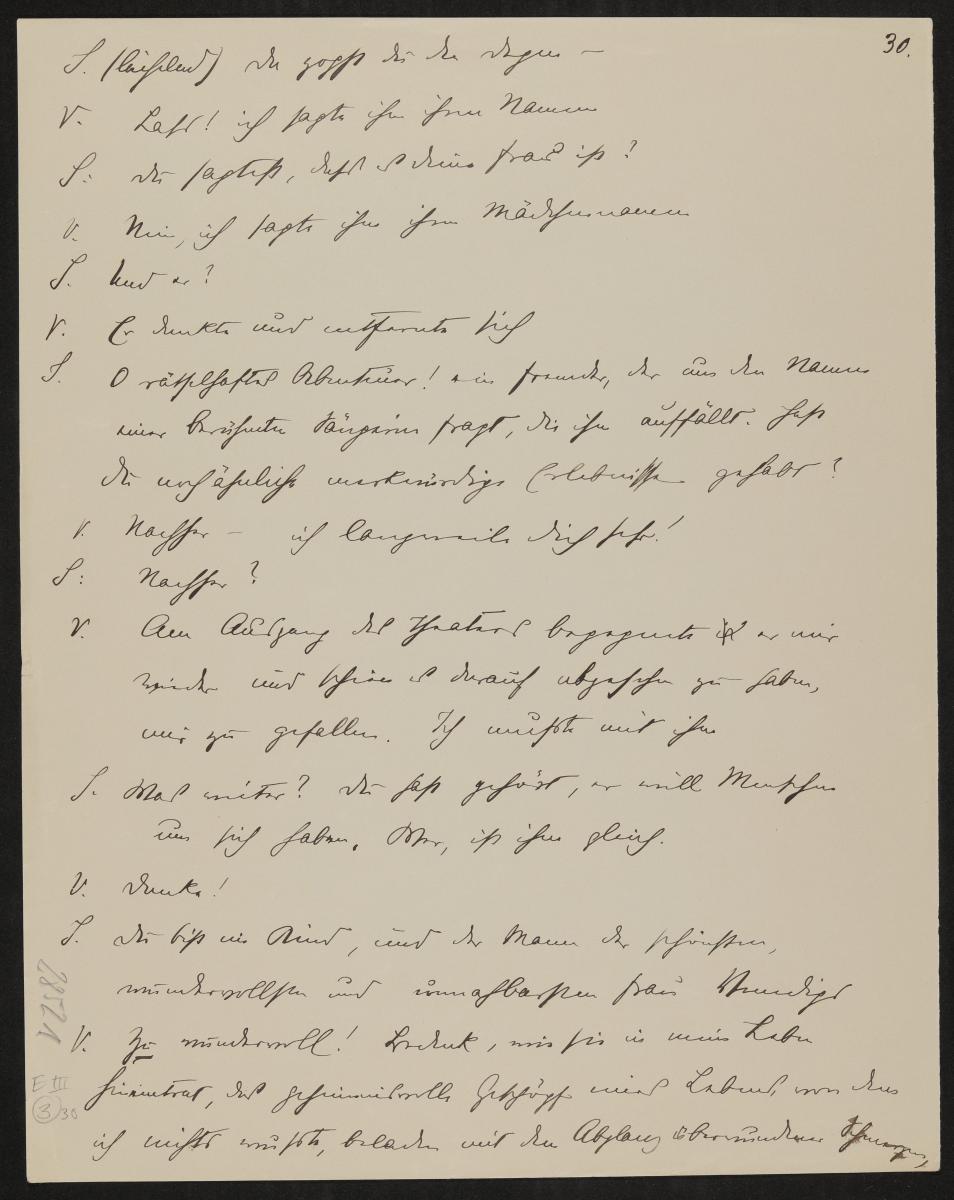 30.
S. (lächelnd) Da zogst du den Degen –
V. Lass! ich sagte ihm ihren Namen
S: Du sagtest, dass es deine Frau ist?
V. Nein, ich sagte ihm ihren Mädchennamen
S. Und er?
V. Er dankte und entfernte sich
S. O rätselhaftes Abenteuer! ein Fremder, der um den Namen
einer berühmten Sängerin fragt, die ihm auffällt. Hast
du noch ähnliche merkwürdige Erlebnisse gehabt?
V. Nachher – ich langweile dich sehr!
S: Nachher?
V. Am Ausgang des Theaters begegnete er mir
wieder und schien es darauf abgesehen zu haben,
mir zu gefallen. Ich musste mit ihm
S. Was weiter? Du hast gehört, er will Menschen
um sich haben. Wer, ist ihm gleich.
V. Danke!
S. Du bist ein Kind, und der Mann der schönsten,
wundervollsten und unnahbarsten Frau Venedigs
V. Zu wundervoll! Bedenk, wie sie in mein Leben
hineintrat, das geheimnisvolle Geschöpf eines Lebens, von dem
ich nichts wusste, beladen mit dem Abglanz überwundener Schmerzen,
28521
E III
3 30